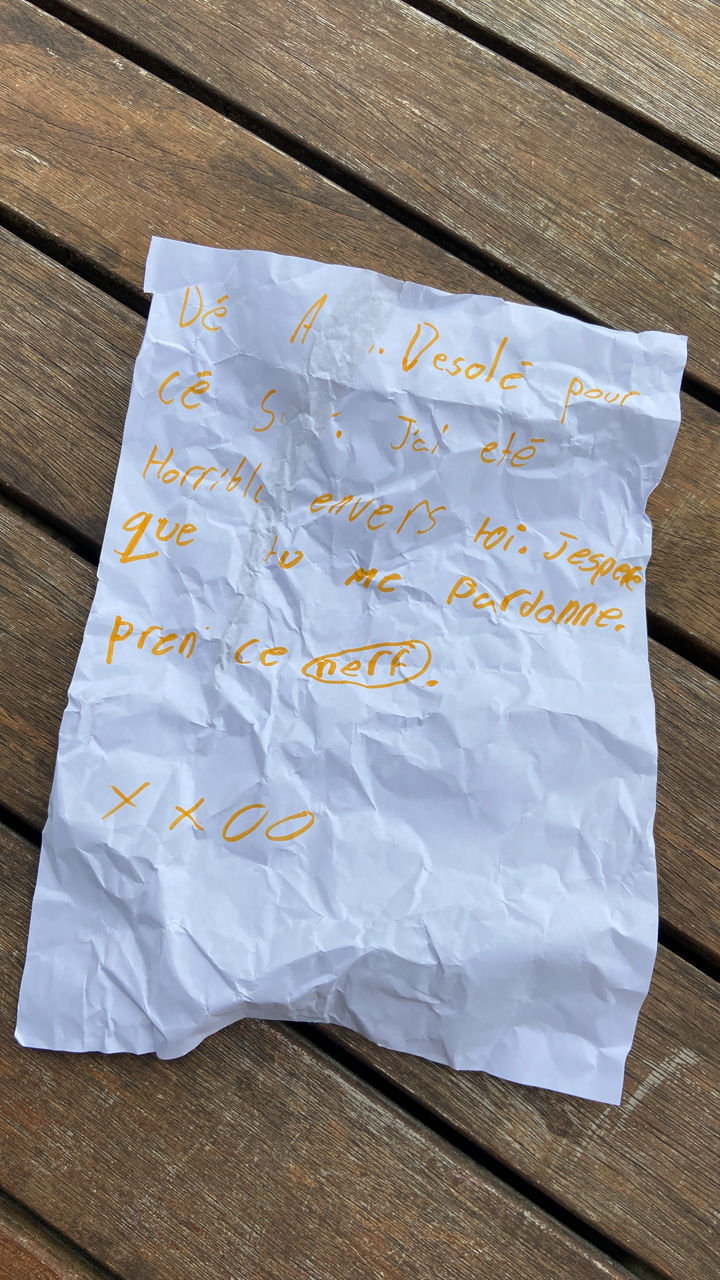 Dé A. Desolé pour
cé J'ai eté
Horrible envers toi. J'espere
que tu me pardonne.
pren ce nerf.
XXOO